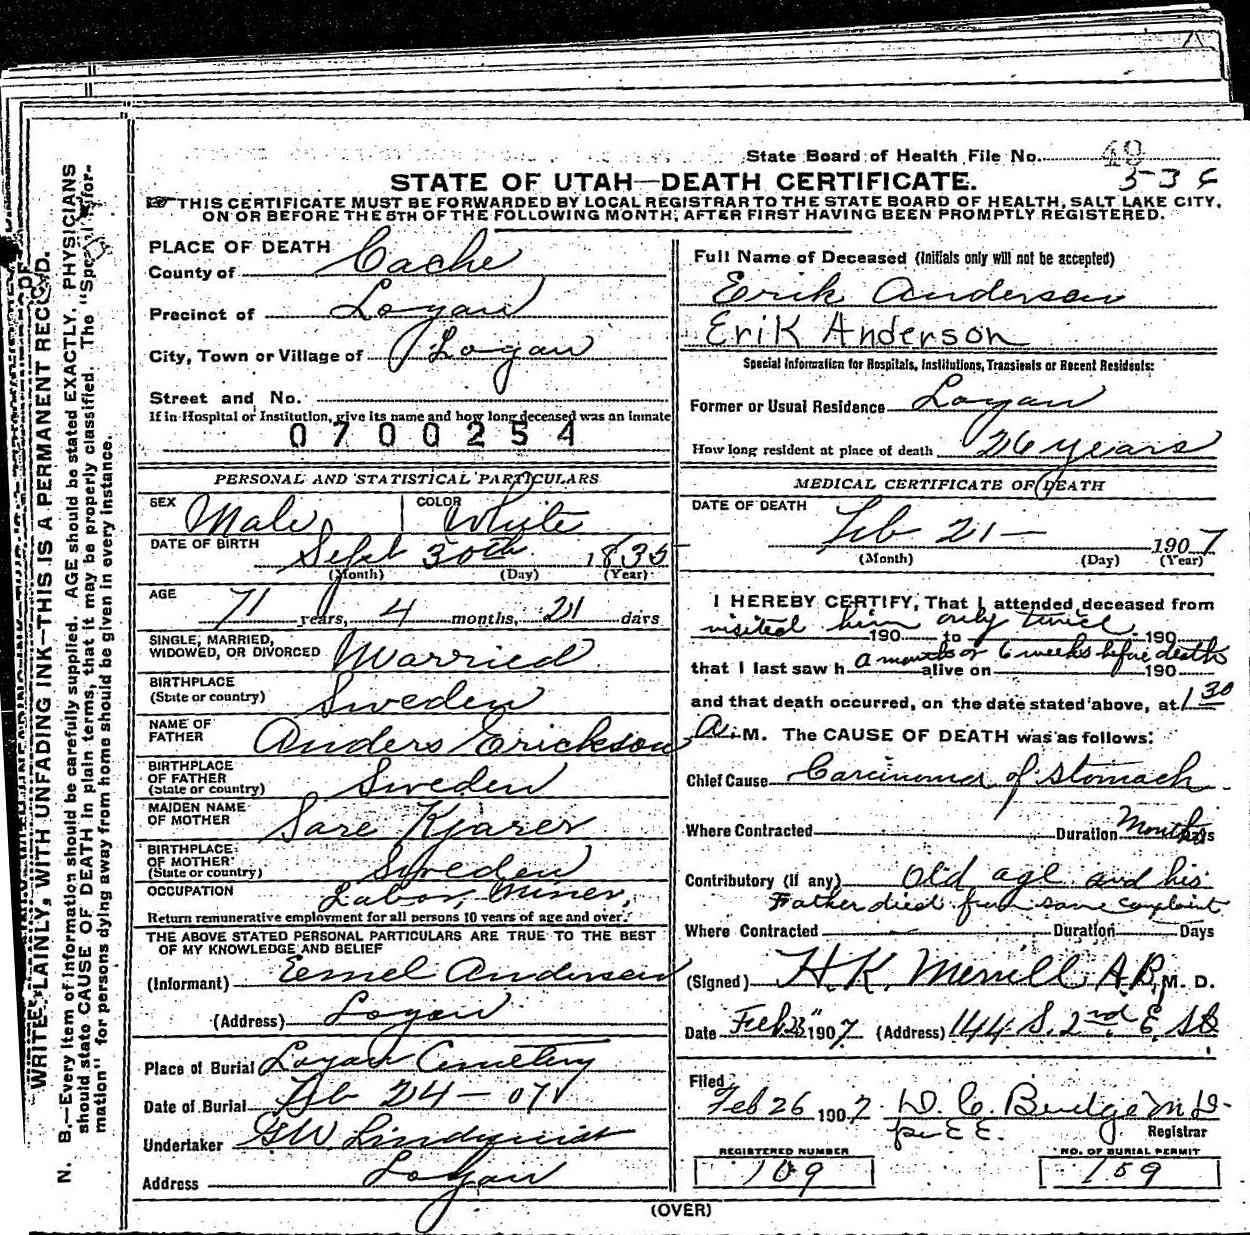 State Board of Health File No. 48
536
STATE OF UTAH—DEATH CERTIFICATE.
THIS CERTIFICATE MUST BE FORWARDED BY LOCAL REGISTRAR TO THE STATE BOARD OF HEALTH, SALT LAKE CITY,
ON OR BEFORE THE 5TH OF THE FOLLOWING MONTH, AFTER FIRST HAVING BEEN PROMPTLY REGISTERED.
PLACE OF DEATH
County of Cache
Precinct of Logan
City, Town or Village of Logan
Street and No.
If in Hospital or Institution, give its name and how long deceased was an inmate
0700254
PERSONAL AND STATISTICAL PARTICULARS
SEX Male COLOR White
DATE OF BIRTH Sept 30th 1835
(Month) (Day) (Year)
AGE 71 years, 4 months, 21 days
SINGLE, MARRIED,
WIDOWED, OR DIVORCED Married
BIRTHPLACE
(State or country) Sweden
NAME OF
FATHER Anders Erickson
BIRTHPLACE
OF FATHER
(State or country) Sweden
MAIDEN NAME
OF MOTHER Sare Kjarer
BIRTHPLACE
OF MOTHER
(State or country) Sweden
OCCUPATION Labor, Miner,
Return remunerative employment for all persons 10 years of age and over.
THE ABOVE STATED PERSONAL PARTICULARS ARE TRUE TO THE BEST
OF MY KNOWLEDGE AND BELIEF
(Informant) Eemel Anderson
(Address) Logan
Place of Burial Logan Cemetery
Date of Burial Feb 24 - 07
Undertaker GW Lindquist
Address Logan
Full Name of Deceased (Initials only will not be accepted)
Erik Anderson
Erik Anderson
Special Information for Hospitals, Institutions, Transients or Recent Residents:
Former or Usual Residence Logan
How long resident at place of death 26 years
MEDICAL CERTIFICATE OF DEATH
DATE OF DEATH
Feb 21 — 1907
(Month) (Day) (Year)
I HEREBY CERTIFY, That I attended deceased from
visited him only twice 190 to 190
that I last saw h a month or 6 weeks before death alive on 190
and that death occurred, on the date stated above, at 1 30
A. M. The CAUSE OF DEATH was as follows:
Chief Cause Carcinoma of Stomach
Where Contracted Duration Months Days
Contributory (if any) Old age and his
Father died from same complaint
Where Contracted Duration Days
(Signed) H. K. Merrill A B, M. D.
Date Feb 1907 (Address) 144 S. 2nd E. St
Filed
Feb 26 1907 D C Budge M D
per E E. Registrar
REGISTERED NUMBER NO. OF BURIAL PERMIT
109 109
(OVER)
WRITE PLAINLY, WITH UNFADING INK—THIS IS A PERMANENT RECORD.
N. B.—Every item of information should be carefully supplied. AGE should be stated EXACTLY. PHYSICIANS
should state CAUSE OF DEATH in plain terms, that it may be properly classified. The "Special Infor-
mation" for persons dying away from home should be given in every instance.